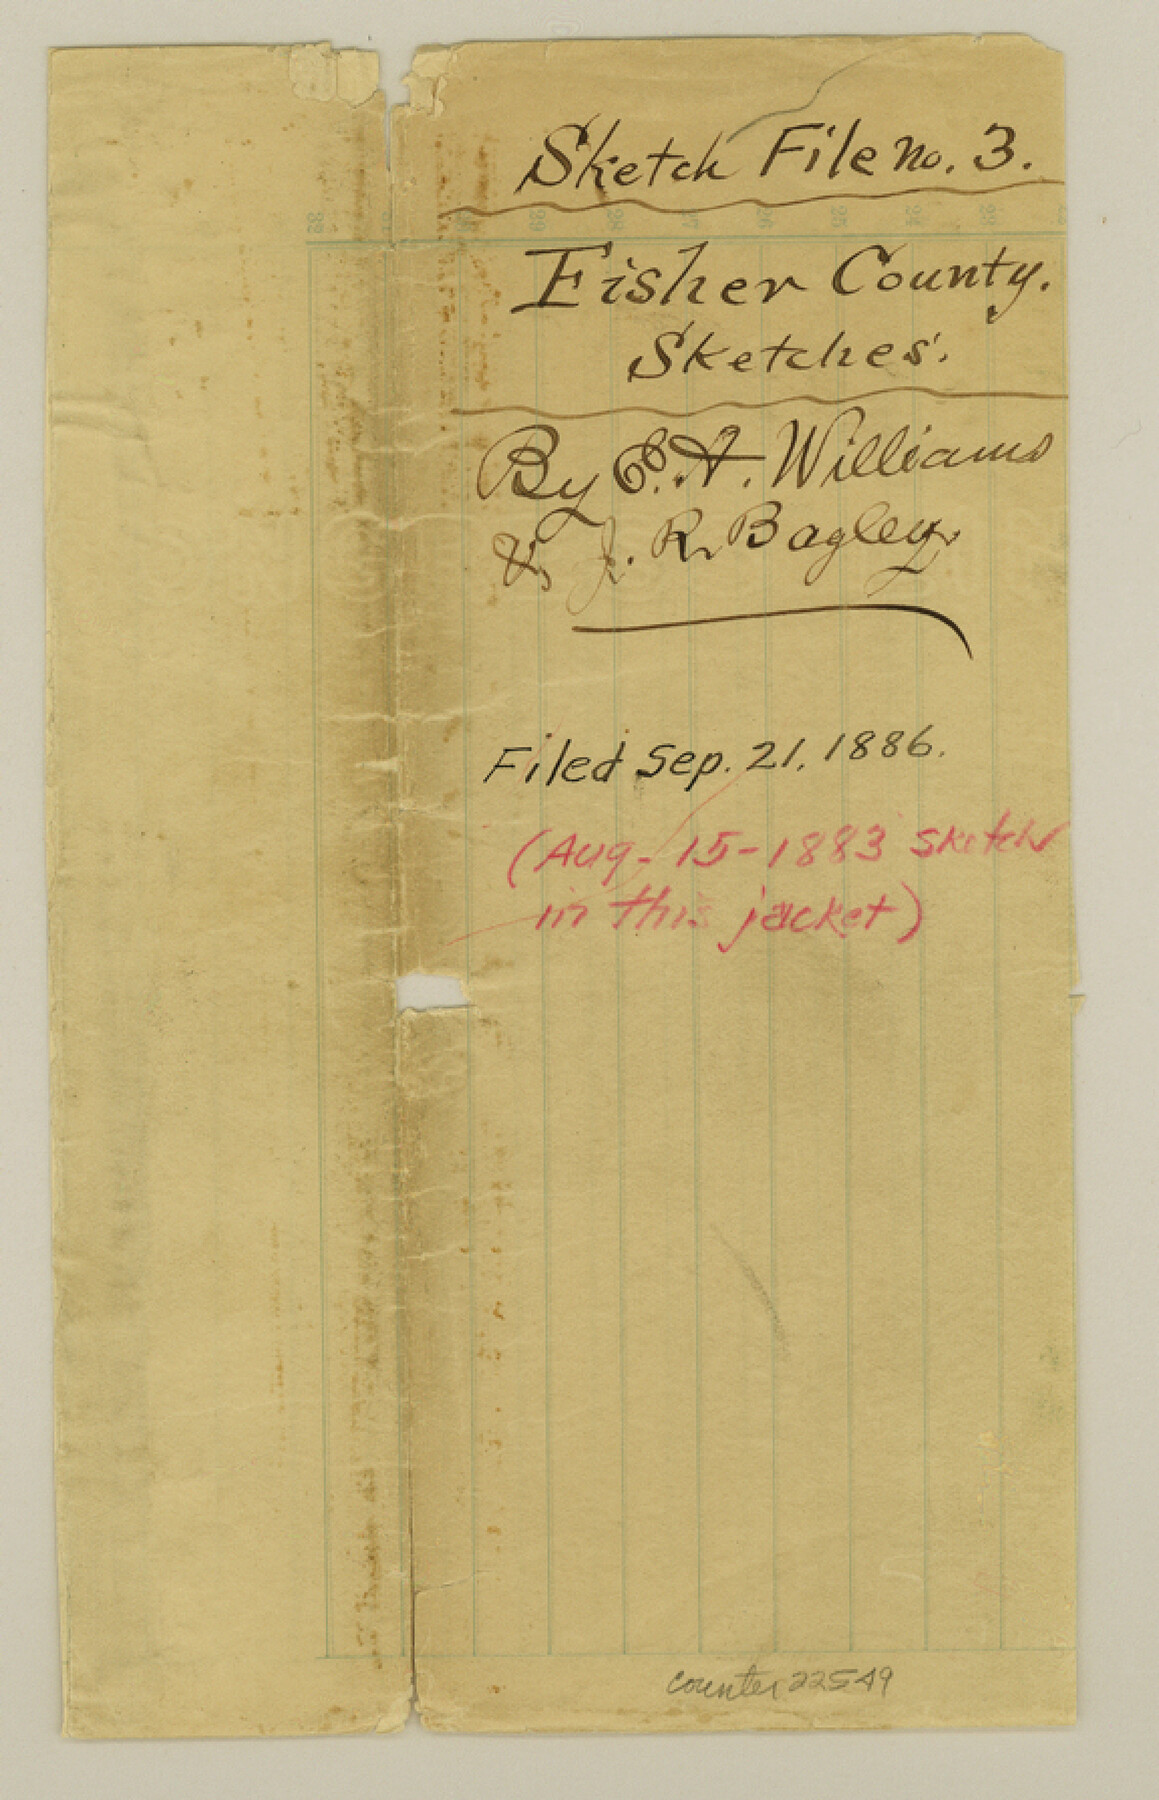 Sketch File No. 3.
Fisher County.
Sketches.
By E. A. Williams
& J. R. Bagley.
Filed Sep. 21, 1886.
(Aug-15-1883 sketch
in this jacket)
counter 22549